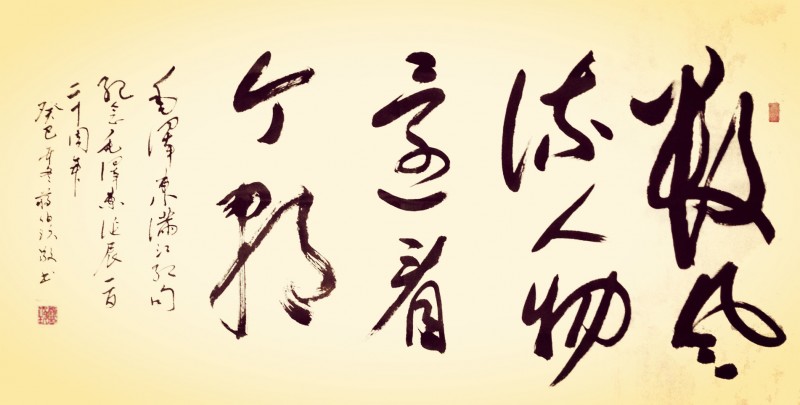 数风
流人物
還看
今朝
毛澤东满江红句
纪念毛澤东诞辰一百
二十周年
癸巳 敬书